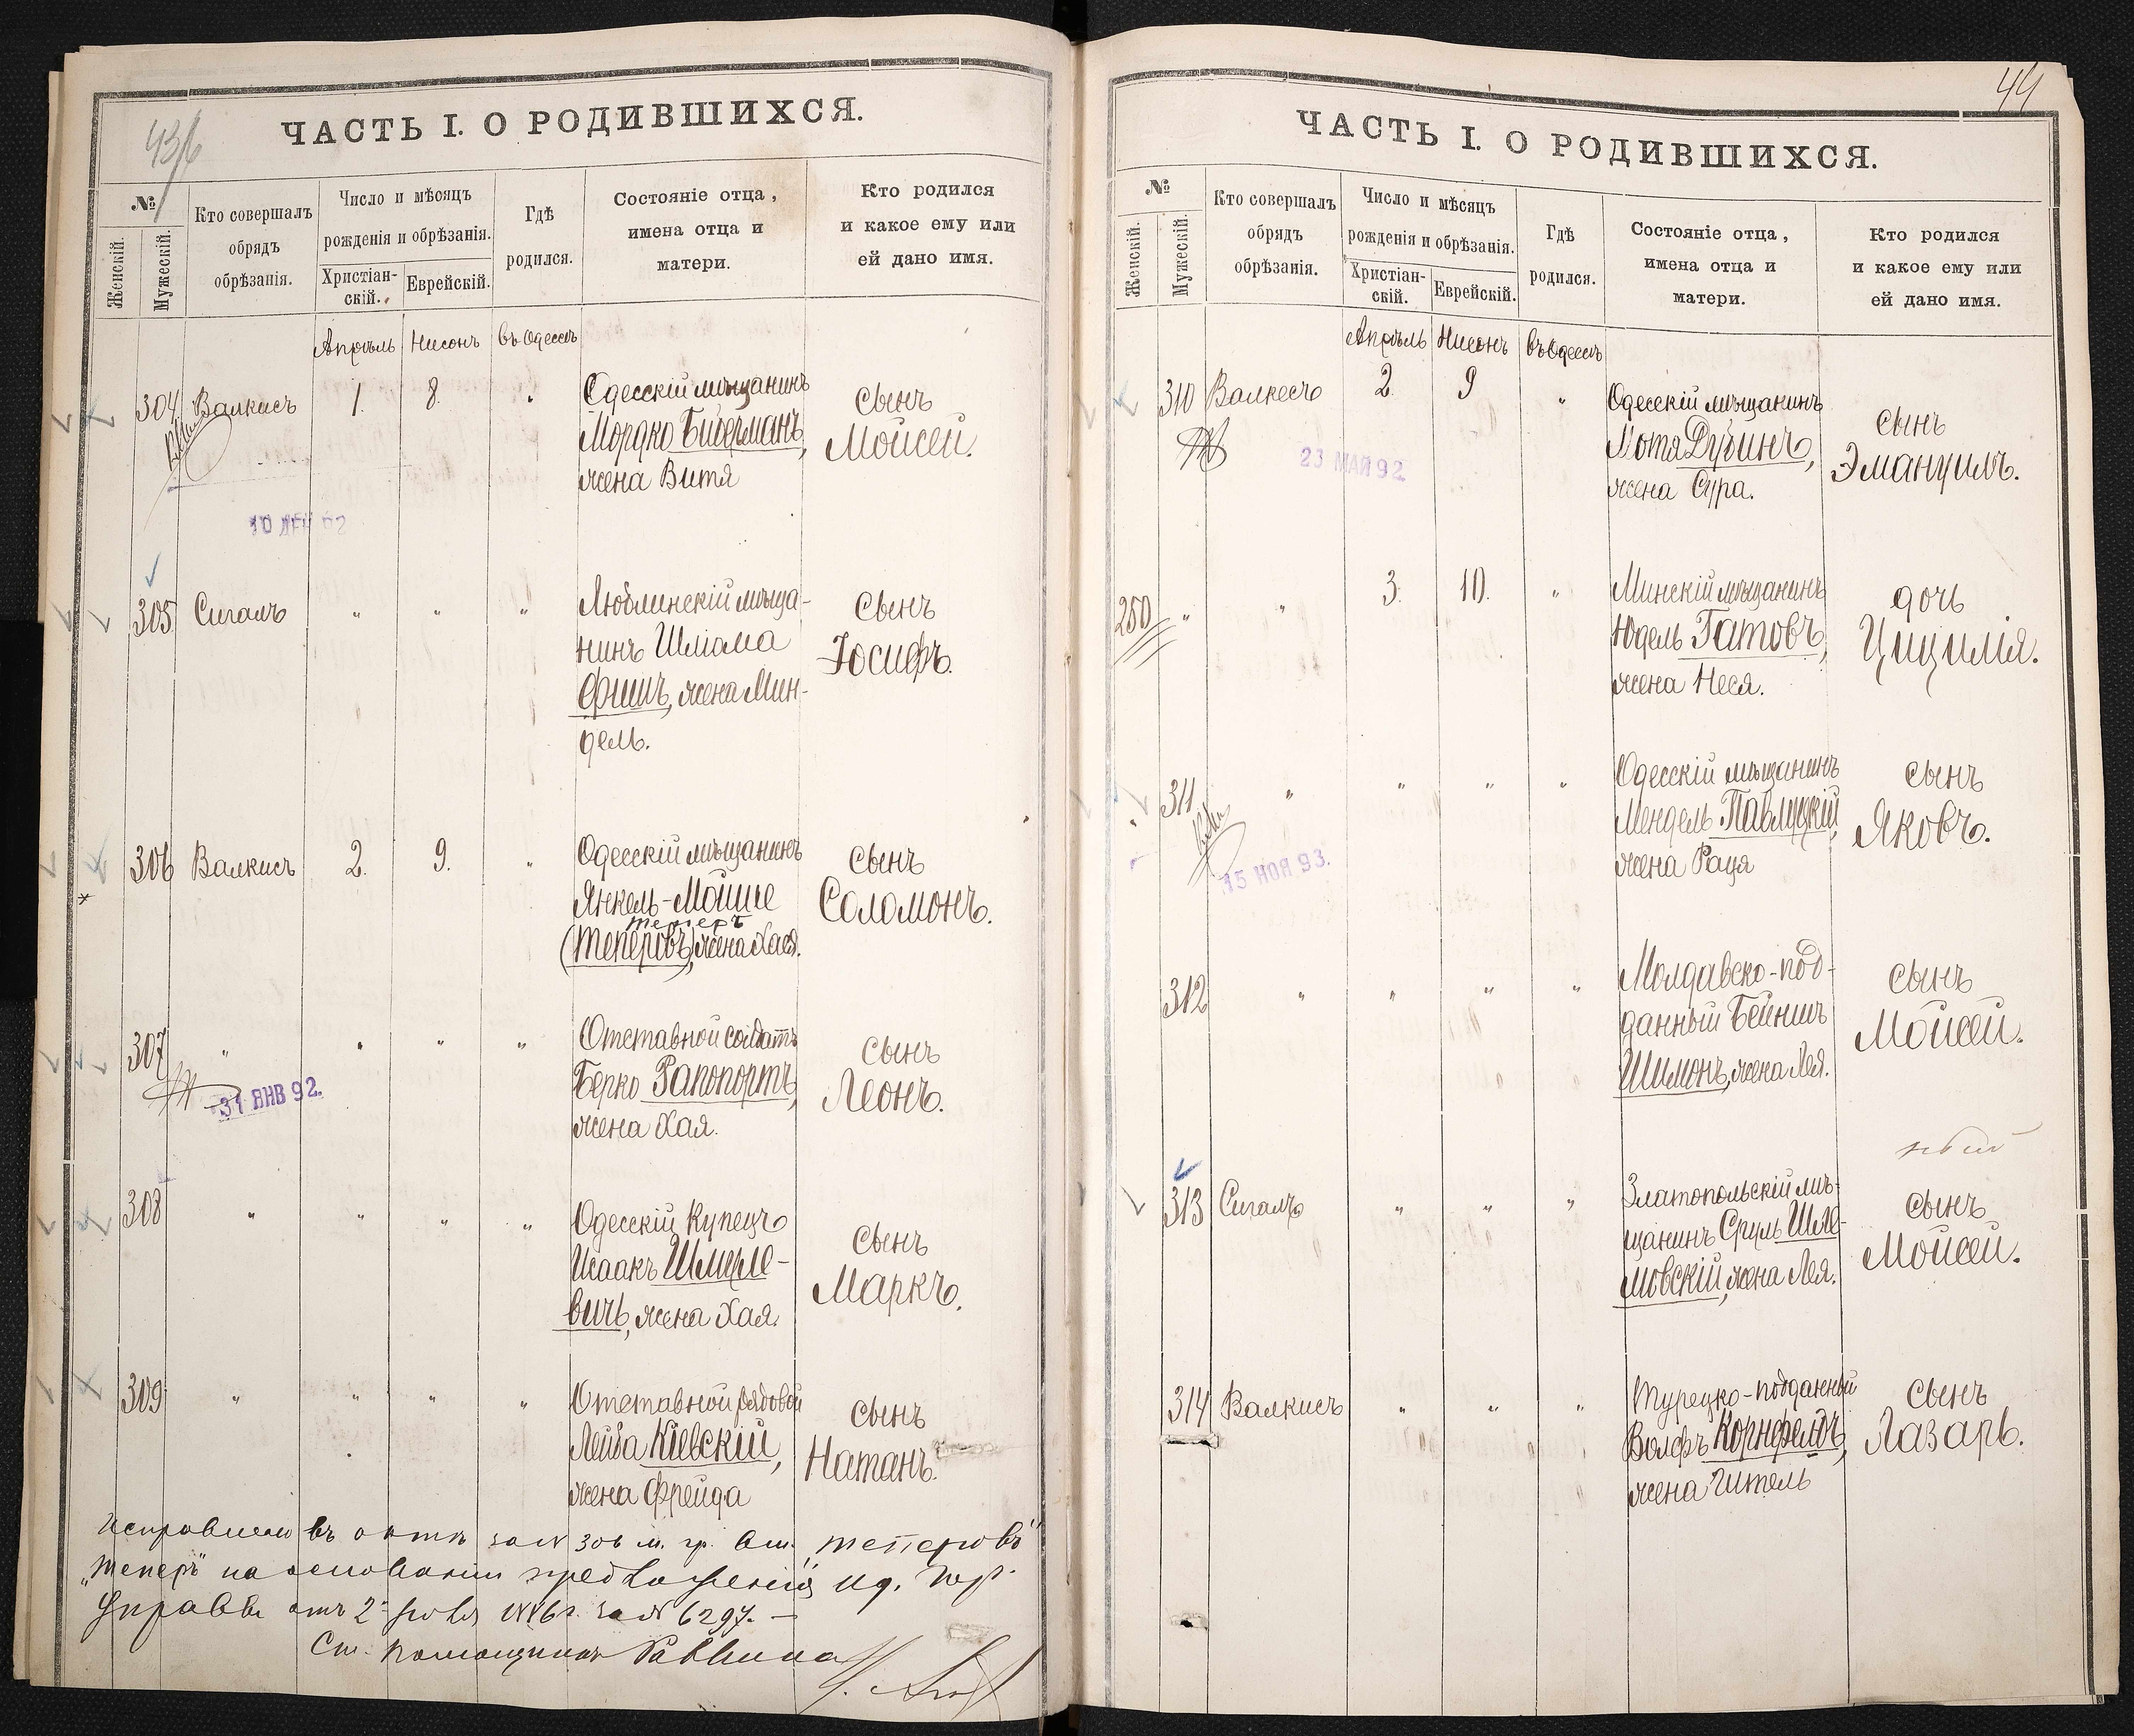 43/б
ЧАСТЬ I. О РОДИВШИХСЯ.
№
Женскій.
Мужескій.
Кто совершалъ
обрядъ
обрѣзанія.
Число и мѣсяцъ
рожденія и обрѣзанія.
Христіан-
скій.
Еврейскій.
Гдѣ
родился.
Состояніе отца,
имена отца и
матери.
Кто родился
и какое ему или
ей дано имя.
Апрѣль Нисонъ въ Одессѣ
304 Валкисъ 1. 8. " Одесскій мѣщанинъ
Мордко Бидерманъ,
жена Витя
сынъ
Мойсей.
305 Сигалъ " " " Люблинскій мѣща-
нинъ Шліома
Фишъ, жена Мин-
дель.
сынъ
Іосифъ.
306 Валкисъ 2. 9. " Одесскій мѣщанинъ
Янкель-Мойше
теперъ
(Теперовъ), жена Хася.
сынъ
Соломонъ.
307 " " " " Отставной солдатъ
Берко Рапопортъ,
жена Хая.
сынъ
Леонъ.
31 ЯНВ 92.
308 " " " " Одесскій купецъ
Исаакъ Шмуле-
вичъ, жена Хая.
сынъ
Маркъ.
309 " " " " Отставной рядовой
Лейба Кіевскій,
жена Фрейда
сынъ
Натанъ.
Исправлено въ актѣ за № 306 м. гр. "Теперовъ"
"Теперъ" на основаніи предложенія Од. Гор.
Управы отъ 2 за № 6297. —
Ст. помощникъ Раввина
44
ЧАСТЬ I. О РОДИВШИХСЯ.
№
Женскій.
Мужескій.
Кто совершалъ
обрядъ
обрѣзанія.
Число и мѣсяцъ
рожденія и обрѣзанія.
Христіан-
скій.
Еврейскій.
Гдѣ
родился.
Состояніе отца,
имена отца и
матери.
Кто родился
и какое ему или
ей дано имя.
Апрѣль Нисонъ въ Одессѣ
310 Валкесъ 2 9 " Одесскій мѣщанинъ
Мотя Дубинъ,
жена Сура.
сынъ
Эмануилъ.
23 МАЙ 92
250 " " 3. 10. " Минскій мѣщанинъ
Юдель Гатовъ,
жена Неся.
дочь
Цицилія.
311 " " " " Одесскій мѣщанинъ
Мендель Павлуцкій,
жена Раця
сынъ
Яковъ.
15 НОЯ 93.
312 " " " " Молдавско-под-
данный Бейнишъ
Шимонъ, жена Лея.
сынъ
Мойсей.
313 Сигалъ " " " Златопольскій мѣ-
щанинъ Сруль Шле-
мовскій, жена Лея.
сынъ
Мойсей.
314 Валкисъ " " " Турецко-подданный
Волфъ Корнфелдъ,
жена Гитель
сынъ
Лазарь.